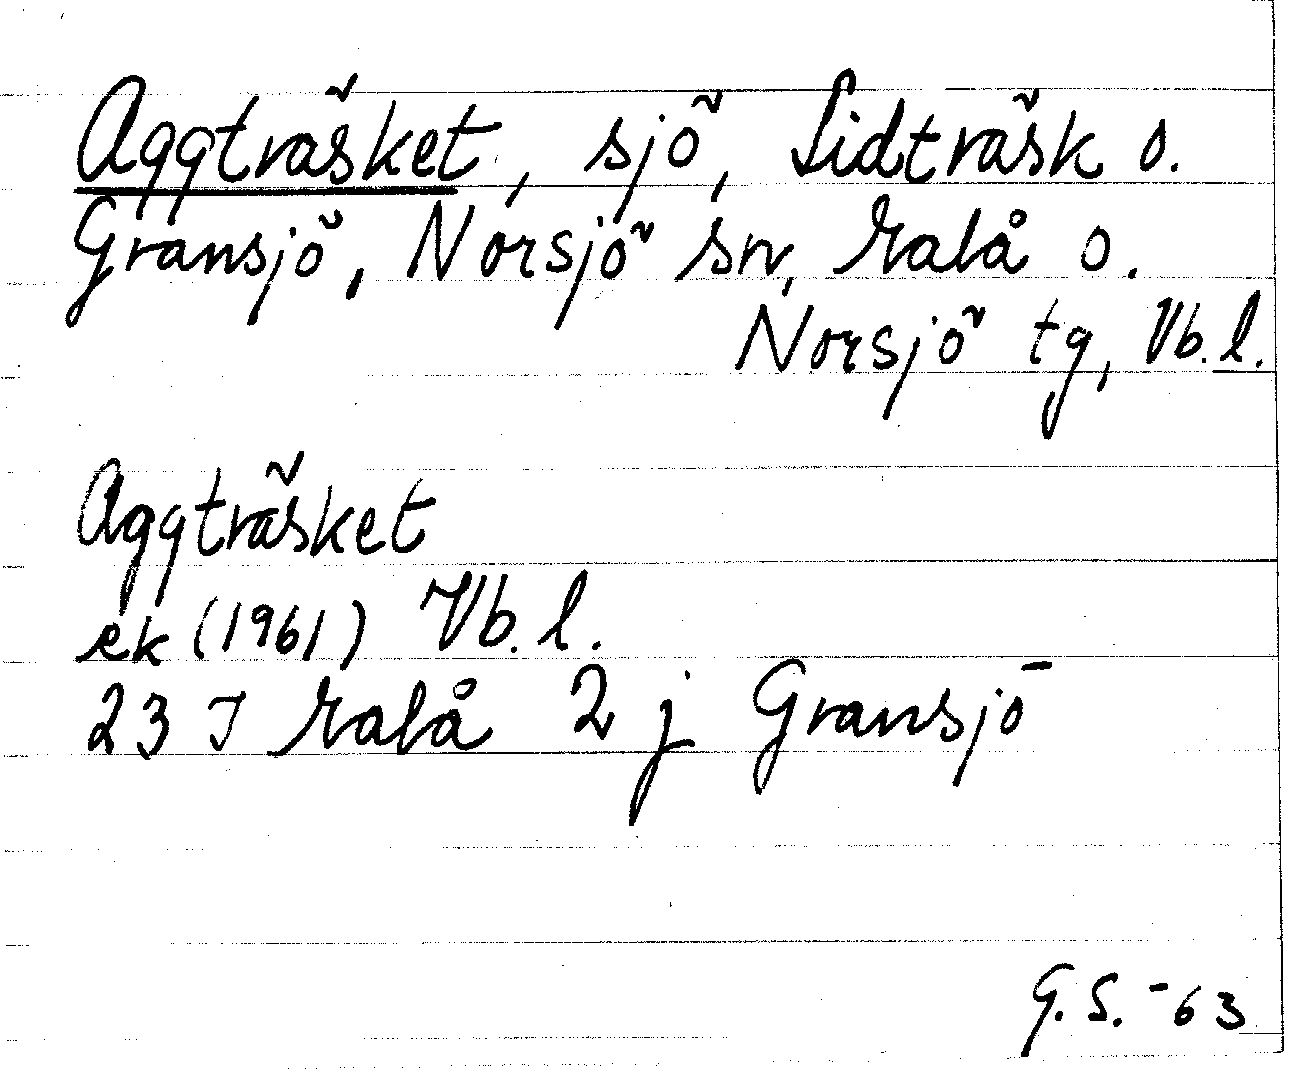 Aggträsket, sjö, Lidträsk o.
Gransjö, Norsjö sn, Malå o.
Norsjö tg, Vb. l.
Aggträsket
ek (1961) Vb. l.
23 I Malå 2 j Gransjö
G. S. -63